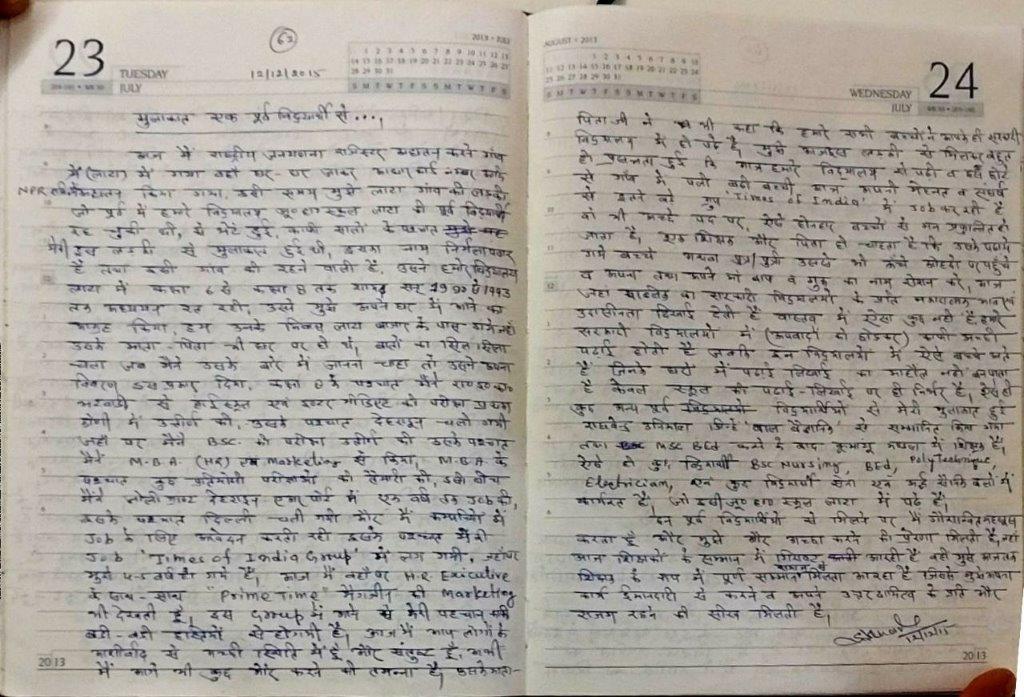 23
TUESDAY
JULY
62
12/12/2015
2013 • JULY
मुलाकात एक पूर्व विद्यार्थी से...,
आज मैं राष्ट्रीय जनगणना रजिस्टर अद्यतन करने गांव
में (लाटा) में गया वहां घर-घर जाकर आधार कार्ड नम्बर
NPR में अद्यतन किया गया, उसी समय मुझे लाटा गांव की लड़की
जो पूर्व में हमारे विद्यालय जू०हा०स्कूल लाटा की पूर्व विद्यार्थी
रह चुकी थी, से भेंट हुई, काफी सालों के पश्चात
मेरी इस लड़की से मुलाकात हुई थी, इसका नाम निर्मला
है तथा इसी गांव की रहने वाली है, उसने हमारे विद्यालय
लाटा में कक्षा 6 से कक्षा 8 तक सन् 1990 से 1993
तक अध्ययन रत रही, उसने मुझे अपने घर में आने का
आग्रह किया, हम उनके निवास लाटा बाजार के पास गये वहां
उसके माता-पिता भी घर पर ही थे, बातों का सिलसिला
चला जब मैंने उसके बारे में जानना चाहा तो उसने अपना
विवरण इस प्रकार दिया, कक्षा 8 के पश्चात मैंने रा०इ०का०
से हाईस्कूल एवं इण्टर मीडिएट की परीक्षा प्रथम
श्रेणी में उत्तीर्ण की, उसके पश्चात देहरादून चली गयी
जहां पर मैंने BSc. की परीक्षा उत्तीर्ण की उसके पश्चात
मैंने M.B.A. (HR) Marketing से किया, M.B.A के
पश्चात कुछ प्रतियोगी परीक्षाओं की तैयारी की, इसी बीच
मैंने जौली ग्रान्ट देहरादून एयर पोर्ट में एक वर्ष तक Job की,
उसके पश्चात दिल्ली चली गयी और मैं कम्पनियों में
Job के लिए आवेदन करती रही उसके पश्चात मेरी
Job 'Times of India Group' में लग गयी, जहां पर
मुझे 4-5 वर्ष हो गये हैं, आज मैं वहां पर H.R. Executive
के साथ-साथ "Prime Time" मैगजीन की Marketing
भी देखती हूँ, इस Group में आने से मेरी पहचान
बड़ी-बड़ी हस्तियों से हो गयी है, आज मैं आप लोगों के
आशीर्वाद से अच्छी स्थिति में हूँ और संतुष्ट हूँ, अभी
मैं आगे भी कुछ और करने की तमन्ना है, उसके माता-
2013
AUGUST • 2013
WEDNESDAY
JULY
24
पिता जी ने भी कहा कि हमारे सभी बच्चों ने आपके ही सरकारी
विद्यालय में ही पढ़े हैं, मुझे आज इस लड़की से मिलकर बहुत
ही प्रसन्नता हुई कि आज हमारे विद्यालय से पढ़ी व बड़ी छोटे
से गांव में पली बढ़ी बच्ची, आज अपने मेहनत व संघर्ष
से इतने बड़े ग्रुप 'Times of India' में Job कर रही है
वो भी अच्छे पद पर, ऐसे होनहार बच्चों से मन प्रफुल्लित हो
जाता है, एक शिक्षक और पिता ही चाहता है कि उसके पढ़ाये
गये बच्चे अथवा पुत्र/पुत्री उससे भी ऊंचे ओहदे पर पहुंचे
व अपना तथा अपने मां बाप व गुरू का नाम रोशन करे, आज
जहां का सरकारी विद्यालयों के प्रति नकारात्मक भाव एवं
उदासीनता दिखाई देती है वास्तव में ऐसा कुछ नहीं है हमारे
सरकारी विद्यालयों में (अपवादों को छोड़कर) काफी अच्छी
पढ़ाई होती है जबकि इन विद्यालयों में ऐसे बच्चे आते
हैं जिनके घरों में पढ़ाई लिखाई का माहौल नहीं
है केवल स्कूल की पढ़ाई-लिखाई पर ही निर्भर हैं, ऐसे ही
कुछ अन्य पूर्व विद्यार्थियों से मेरी मुलाकात हुई
राघवेन्द्र उनियाल जिन्हें 'बाल वैज्ञानिक' से सम्मानित किया गया
तथा MSc BEd करने के बाद में शिक्षक हैं,
ऐसे ही कुछ विद्यार्थी BSc Nursing, BEd, Polytechnique,
Electrician, एवं कुछ विद्यार्थी सेना एवं अर्द्ध सैनिक बलों में
कार्यरत हैं, जो इसी जू०हा० स्कूल लाटा में पढ़े हैं,
इन पूर्व विद्यार्थियों से मिलने पर मैं गौरवान्वित महसूस
करता हूँ और मुझे और अच्छा करने की प्रेरणा मिलती है, जहां
आज शिक्षकों के सम्मान में गिरावट आती है वहीं मुझे
शिक्षक के रूप में पूर्ण सम्मान मिलता आ रहा है जिससे मुझे अपना
कार्य ईमानदारी से करने व अपने उत्तरदायित्व के प्रति और
सजग रहने की सीख मिलती है,
2013